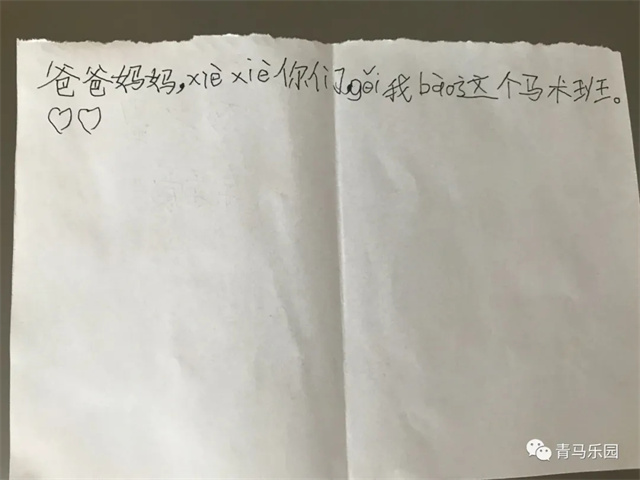 爸爸妈妈,xiè xiè你们gěi我bào了这个马术班。
♡♡
青马乐园